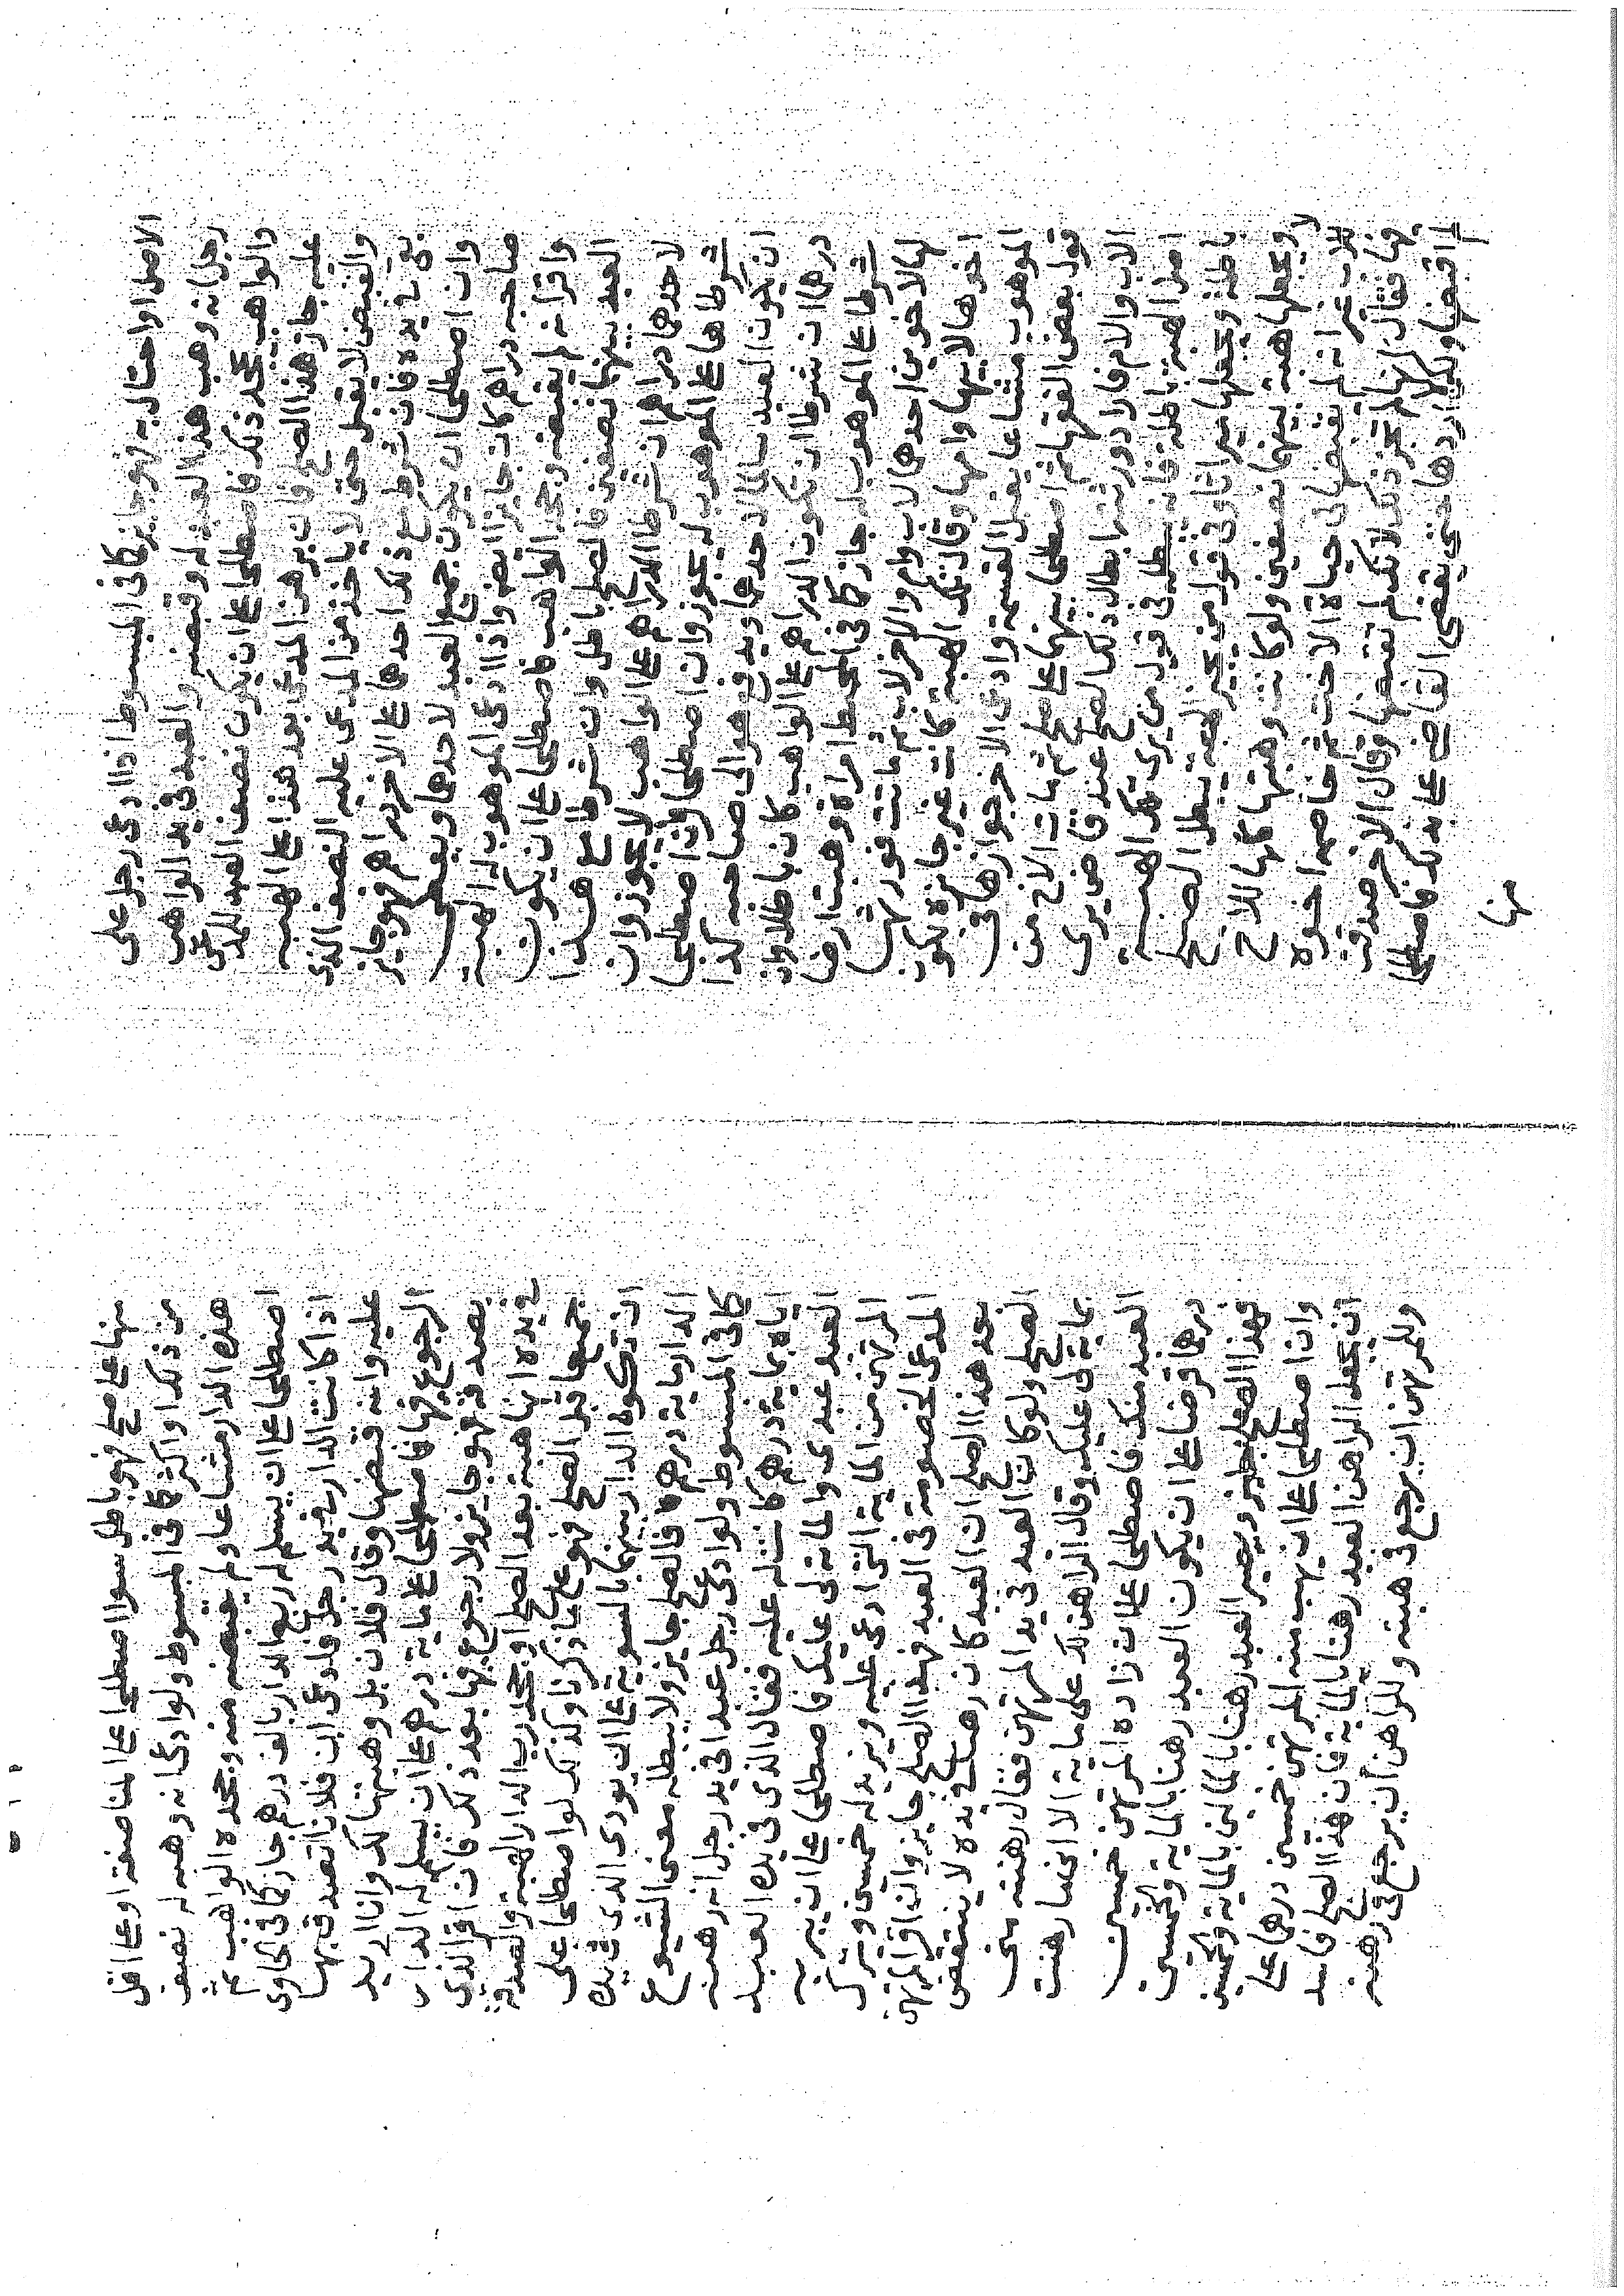 الاصل او احتال به فهو جايز كما في المبسوط اذا ادعى رجل على
رجل انه وهب هذا العبد له وقبضه والعبد في يد الواهب
والواهب يجحد ذلك فاصطلحا على ان يكون نصف العبد للمدعي
عليه جاز هذا الصلح فان برهن المدعي بعد هذا على الهبة
والقبض لا يقبل حتى لا ياخذ من المدعى عليه النصف الذي
بقي في يده فان شرط مع ذلك احدهما على الاخر دراهم فهو جايز
وان اصطلحا ان يكون جميع العبد لاحدهما ويعطي
صاحبه دراهم كان جايزا ايضا واذا ادعى الموهوب له الهبة
واقر انه لم يقبضه وجحد الواهب فاصطلحا على ان يكون
العبد بينهما نصفين فالصلح باطل وان شرطا مع هذا
لاحدهما دراهم ان شرطا الدراهم على الواهب لا يجوز وان
شرطاها على الموهوب له يجوز وان اصطلحا فان اصطلحا
ان يكون العبد سالما لاحدهما ويدفع هو الى صاحبه كذا
درهما ان شرطا ان تكون الدراهم على الواهب كان باطلا وان
شرطا على الموهوب له جاز كما في المحيط امراة وهبت ارضا
لها لاخوين احدهما لاب وام والاخر لاب ثم ماتت فورثها
اخوها لابيها وامها وقال تلك الهبة كانت غير جايزة لكون
الموهوب مشاعا يقبل القسمة وادعى الاخر جوازها في
قول بعض الفقهاء ثم اصطلحا بينهما على صلح ثم مات الاخ من
الاب والام فاراد ورثته ابطال ذلك الصلح عند قاض يرى
اصل الهبة باطلة فانه يبطله في قول من يرى تلك الهبة
باطلة ويجعلها ميراثا وفي قول من يجيز الهبة يبطل الصلح
ويجعلها هبة بينهما نصفين ولو كانت وهبتها كلها للاخ
للاب غير انه لم يقبضها في حياة الاخت ثم خاصمه اخوه
فيها فقال انها لم تجز ذلك لانك لم تقبضها وقال الاخر صدقت
لم اقبضها ولكن لا اردها حتى يقضي القاضي على بذلك فاصطلحا
منها
منها على صلح فهو باطل سوا اصطلحا على المناصفة او على اقل
من ذلك او اكثر كما في المبسوط ولو ادعى انه وهبه له نصف
هذه الدار مشاعا ولم يقبضه منه وجحده الواهب ثم
اصطلحا على ان يسلم له ربع الدار بالف درهم جاز كما في الحاوي
اذا كانت الدار في يد رجل فادعى ان فلانا تصدق بها
عليه وانه قبضها وقال فلان بل وهبتها لك وانا اريد
الرجوع فيها فاصطلحا على ماية درهم على ان يسلم له الدار
بصدقة فهو جايز ولا رجوع فيها بعد ذلك فان اقر الذي
في يده انها هبة بعد الصلح او جحد رب الدار الهبة والصدقة
جميعا قبل الصلح فهو على ما ذكرنا وكذلك لو اصطلحا على
ان تكون الدار بينهما بالسوية على ان يودي الذي في يده
الدار ماية درهم فالصلح جايز ولا يبطله معنى الشيوع
كما في المبسوط ولو ادعى رجل عبدا في يد رجل انه رهنه
اياه بماية درهم كانت له عليه فقال الذي في يده العبد
العبد عبدي والماية لي عليك فاصطلحا على ان يبريه
المرتهن من الماية التي ادعى عليه ويزيد له خمسين ويترك
المدعي الخصومة في العبد فهذا الصلح جايز وان اقر المرتهن
بعد هذا الصلح ان العبد كان رهنا في يده لا ينتقض
الصلح ولو كان العبد في يد المرتهن فقال رهنته مني
بماية لي عليك وقال الراهن لك علي ماية الا اني ما رهنت
العبد منك فاصطلحا على ان زاده المرتهن خمسين
درهما قرضا على ان يكون العبد رهنا بالماية والخمسين
فهذا الصلح جايز ويصير العبد رهنا بالماية والخمسين
وان اصطلحا على ان يهب منه المرتهن خمسين درهما على
ان يجعل الراهن العبد رهنا بالماية فان هذا الصلح فاسد
وللمرتهن ان يرجع في هبته وللراهن ان يرجع في رهنه